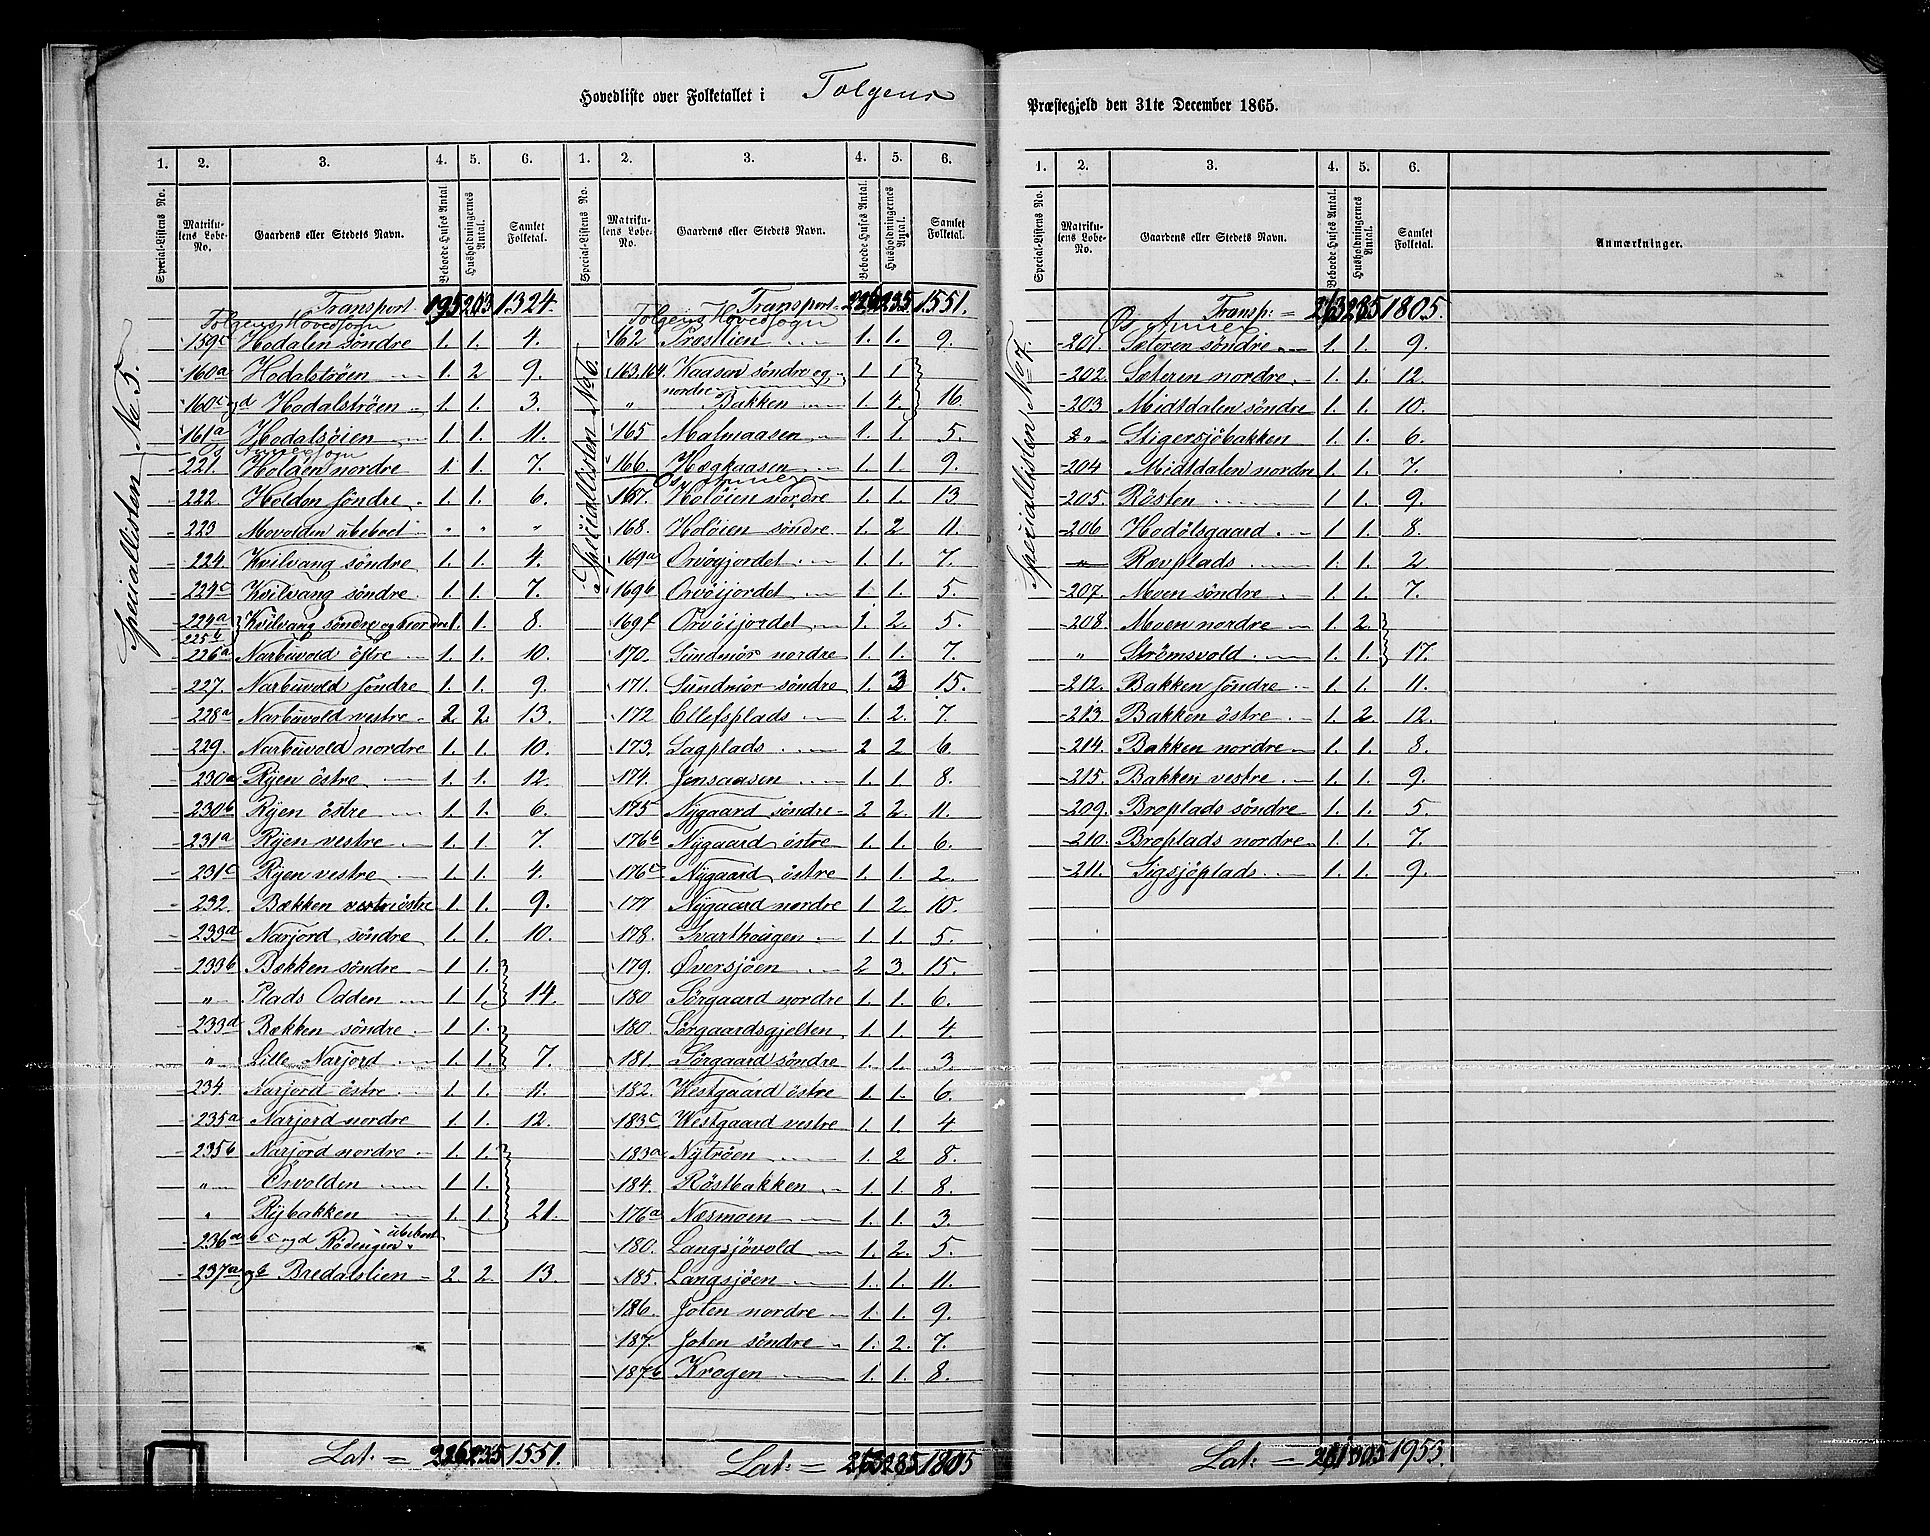 Hovedliste over Folketallet i Tolgens
Præstegjeld den 31te December 1865.
1. 2. 3. 4. 5. 6. 1. 2. 3. 4. 5. 6.
Special-Listens No. Matrikulens Løbe-No. Gaardens eller Stedets Navn. Beboede Huses Antal. Husholdningernes Antal. Samlet Folketal.
Transport 195 203 1324.
Speciallisten No 5.
Tolgens Hovedsogn
159c Hodalen söndre 1. 1. 4.
160a Hodalströen 1. 2 9.
160c og d Hodalströen 1. 1. 3.
161a Hodalsöien 1. 1. 11.
Os Annexsogn
221. Holden nordre 1. 1. 7.
222. Holden söndre 1. 1. 6.
223 Movolden ubeboet " " "
224. Kvilvang söndre 1. 1. 4.
224c Kvilvang söndre 1. 1. 7.
224a 225b Kvilvang söndre og nordre 1. 1. 8.
226a Narbuvold östre 1. 1. 10.
227. Narbuvold söndre 1. 1. 9.
228a Narbuvold vestre 2. 2. 13.
229. Narbuvold nordre 1. 1. 10.
230a Ryen östre 1. 1. 12.
230b Ryen östre 1. 1. 6.
231a Ryen vestre 1. 1. 7.
231c Ryen vestre 1. 1. 4.
232. Bækken östre 1. 1. 9.
233a Narjord söndre 1. 1. 10.
233b Bækken söndre 1. 1.
" Plads Odden 1. 1. 14.
233d Bækken söndre 1. 1.
" Lille Narjord 1. 1. 7.
234. Narjord östre 1. 1. 11.
235a Narjord nordre 1. 1. 12.
235b Narjord nordre 1. 1.
" Orvolden 1. 1.
" Rybakken 1. 1. 21.
236a b c og d ubeboet
237a og b Bredalslien 2. 2. 13.
Lat. = 226 235 1551.
Special-Listens No. Matrikulens Løbe-No. Gaardens eller Stedets Navn. Beboede Huses Antal. Husholdningernes Antal. Samlet Folketal.
Transport 226 235 1551.
Speciallisten No 6.
Tolgens Hovedsogn
162 Præstlien 1. 1. 9.
163.164 Kaasen söndre og nordre 1. 1
" Bakken 1. 4. 16.
165 Malmaasen 1. 1. 5.
166. Hægkaasen 1. 1. 9.
Os Annex
167. Holöien nordre 1. 1. 13
168. Holöien söndre 1. 2 11.
169a Orvöijordet 1. 1. 7.
169b Orvöijordet 1. 1. 5.
169f Orvöijordet 1. 2. 5.
170. Sundmör nordre 1. 1. 7.
171. Sundmör söndre 1. 3 15.
172 Ellefsplads 1. 2. 7.
173. Sagplads 2 2 6.
174. Jensaasen 1. 1. 8.
175 Nygaard söndre 2 2. 11.
176b Nygaard östre 1. 1. 6.
176c Nygaard östre 1. 1. 2.
177 Nygaard nordre 1. 2. 10.
178. Svarthougen 1. 1. 5.
179. Översjöen 2 3. 15.
180 Sörgaard nordre 1. 1. 6.
180. Sörgaardsgjelten 1. 1. 4
181. Sörgaard söndre 1. 1. 3
182. Westgaard östre 1. 1. 6.
183c Westgaard vestre 1. 1. 4
183a Nytröen 1. 2 8.
184. Röstbakken 1. 1. 8.
176a Næsmoen 1. 1. 3.
180. Langsjövold 1. 2. 5.
185. Langsjöen 1. 1. 11.
186. Joten nordre 1. 1. 9.
187. Joten söndre 1. 2. 7.
187b Krogen 1. 1. 8.
Lat: = 263 285 1805
1. 2. 3. 4. 5. 6.
Special-Listens No. Matrikulens Løbe-No. Gaardens eller Stedets Navn. Beboede Huses Antal. Husholdningernes Antal. Samlet Folketal. Anmærkninger.
Transp: = 263 285 1805.
Speciallisten No 7.
Os Annex.
201. Sæteren söndre 1. 1. 9.
202. Sæteren nordre 1. 1. 12.
203 Midtdalen söndre 1. 1. 10.
" Stigersjöbakken 1. 1. 6.
204 Midtdalen nordre 1. 1. 7.
205. Rösten 1. 1. 9.
206 Hodölsgaard 1. 1. 8.
" Rævplads 1. 1. 2
207. Moen söndre 1. 1. 7.
208. Moen nordre 1. 2.
" Strömsvold 1. 1. 17.
212. Bakken söndre 1. 1. 11.
213 Bakken östre 1. 2. 12.
214. Bakken nordre 1. 1. 8.
215. Bakken vestre 1. 1. 9.
209. Broplads söndre 1. 1. 5
210. Broplads nordre 1. 1. 7.
211. Sigsjöplads 1. 1. 9.
Lat: = 281 305 1953.